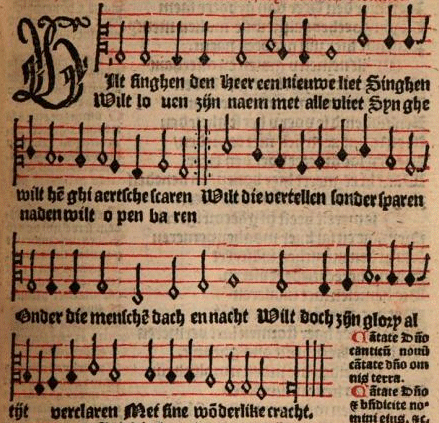 Ilt singhen den Heer een nieuwe liet Singhen
Wilt lo uen zijn naem met alle vliet Syn ghe
wilt hē ghi aertsche scaren Wilt die vertellen sonder sparen
naden wilt o pen ba ren
Onder die menschē dach en nacht Wilt doch zijn glory al
tijt verclaren Met sine wōderlike cracht.
Cātate Dño
canticū nouū
cātate dño om
nis terra.
Cātate Dño
& bñdicite no-
mini eius, &c.